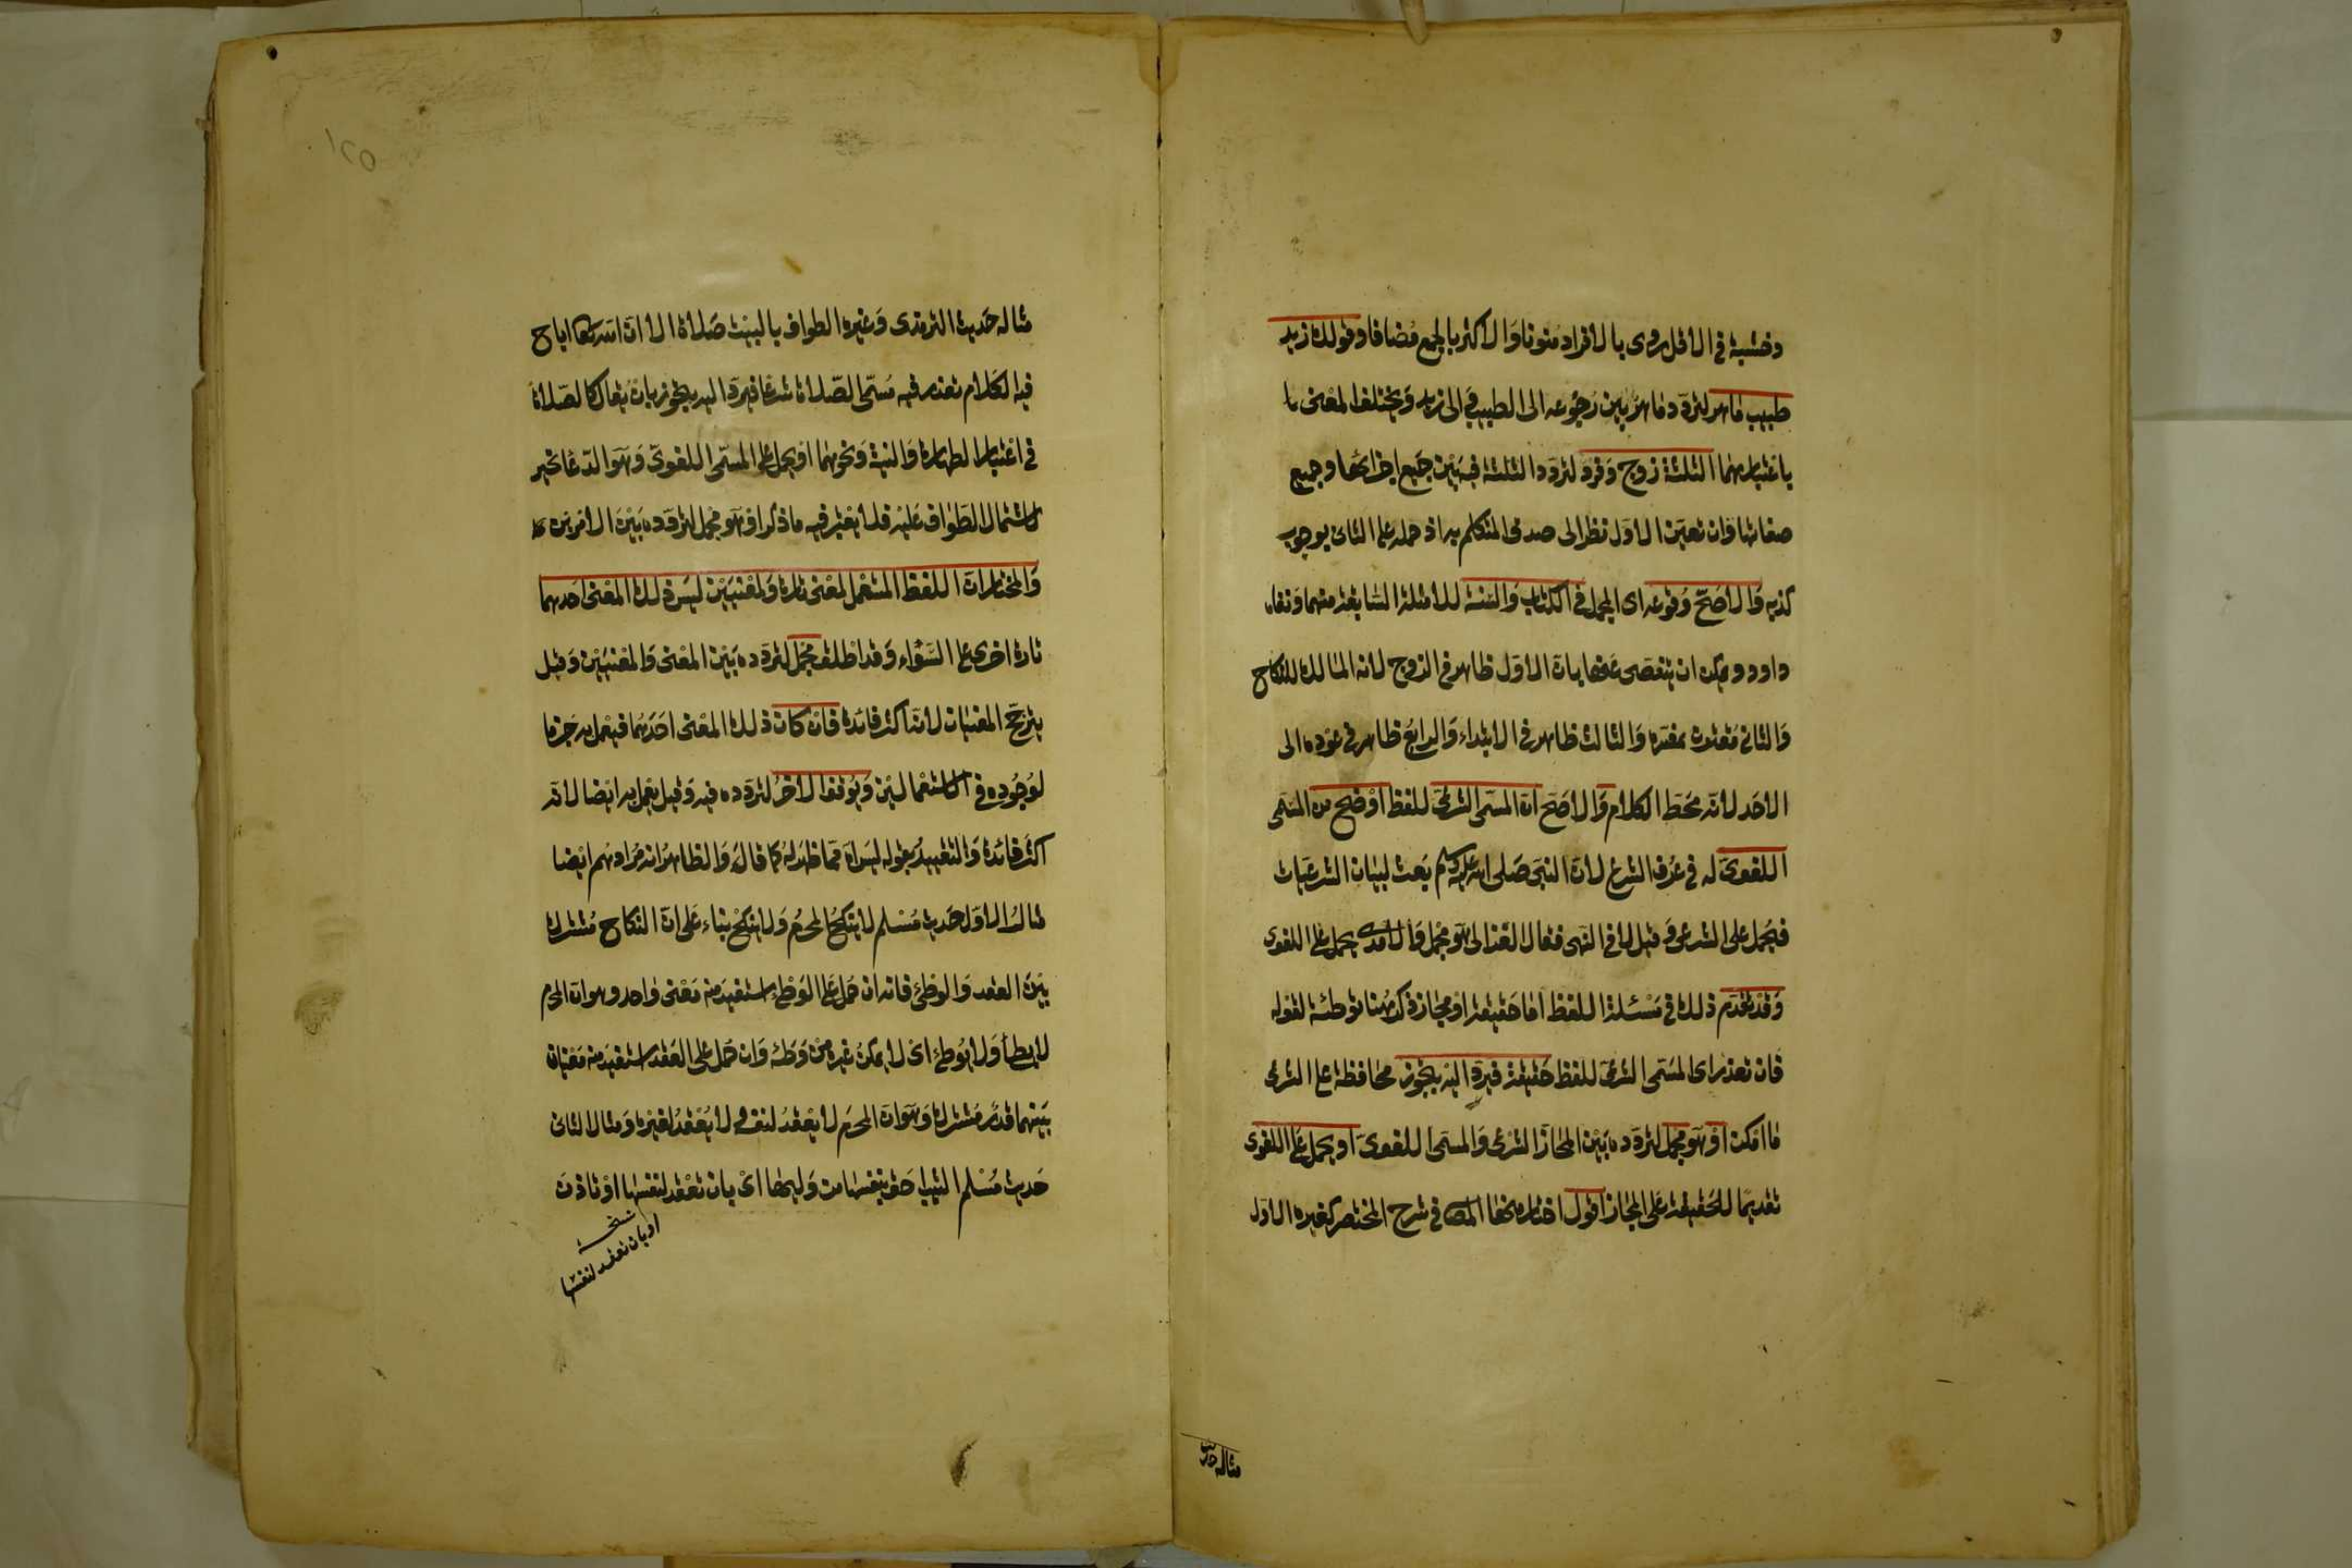 وخشبة في الاقل روى بالافراد منونا والاكثر بالجمع مضافا وقولك زيد
طبيب ماهر لتردد ماهر بين رجوعه الى الطبيب والى زيد ويختلف المعنى با
باعتبارهما الثلثة زوج وفرد لتردد الثلثة فيه بين جميع اجزائها وجميع
صفاتها وان تعين الاول نظرا الى صدق المتكلم به اذ حمله على الثانى يوجب
كذبه والاصح وقوعه اى المجمل في الكتاب والسنة للامثلة السابقة منهما ونفاه
داود ويمكن ان ينفصى عنها بان الاول ظاهر في الزوج لانه المالك للنكاح
والثانى مقترن بمفسره والثالث ظاهر في الابتداء والرابع ظاهر في عوده الى
الاحد لانه محط الكلام والاصح ان المسمى الشرعى للفظ اوضح من المسمى
اللغوى له في عرف الشرع لان النبى صلى الله عليه وسلم بعث لبيان الشرعيات
فيحمل على الشرعى وقيل لا في النهى فقال الغزالى هو مجمل والآمدى يحمل على اللغوى
وقد تقدم ذلك في مسئلة اللفظ اما حقيقة او مجاز ذكر هنا توطئة لقوله
فان تعذر اى المسمى الشرعى للفظ حقيقة فيرد اليه بتجوز محافظة على الشرعى
ما امكن او هو مجمل لتردده بين المجاز الشرعى والمسمى اللغوى او يحمل على اللغوى
تقديما للحقيقة على المجاز اقوال اختار منها المص في شرح المختصر كغيره الاول
مثاله حديث
مثاله حديث الترمذى وغيره الطواف بالبيت صلاة الا ان الله تعا اباح
فيه الكلام تعذر فيه مسمى الصلاة شرعا فيرد اليه بتجوز بان يقال كالصلاة
في اعتبار الطهارة والنية ونحوهما او يحمل على المسمى اللغوى وهو الدعا بخير
لاشتمال الطواف عليه فلا يعتبر فيه ما ذكر او هو مجمل لتردده بين الامرين
والمختار ان اللفظ المستعمل لمعنى تارة ولمعنيين ليس ذلك المعنى احدهما
تارة اخرى على السواء وقد اطلق مجمل لتردده بين المعنى والمعنيين وقيل
يترجح المعنيان لانه اكثر فائدة فان كان ذلك المعنى احدهما فيعمل به جزما
لوجوده في الاستعمالين ويوقف الآخر لتردده فيه وقيل يعمل به ايضا لانه
اكثر فائدة والتقييد بقوله ليس اه مما ظهر له كما قال والظاهر انه مرادهم ايضا
مثال الاول حديث مسلم لا ينكح المحرم ولا ينكح بناء على ان النكاح مشترك
بين العقد والوطئ فانه ان حمل على الوطئ استفيد منه معنى واحد وهو ان المحرم
لا يطأ ولا يوطئ اى لا يمكن غيره من وطئه وان حمل على العقد استفيد منه معنيان
بينهما قدر مشترك وهو ان المحرم لا يعقد لنفسه ولا يعقد لغيره ومثال الثانى
حديث مسلم الثيب احق بنفسها من وليها اى بان تعقد لنفسها او تاذن
نسخة
او بان تعقد لنفسها